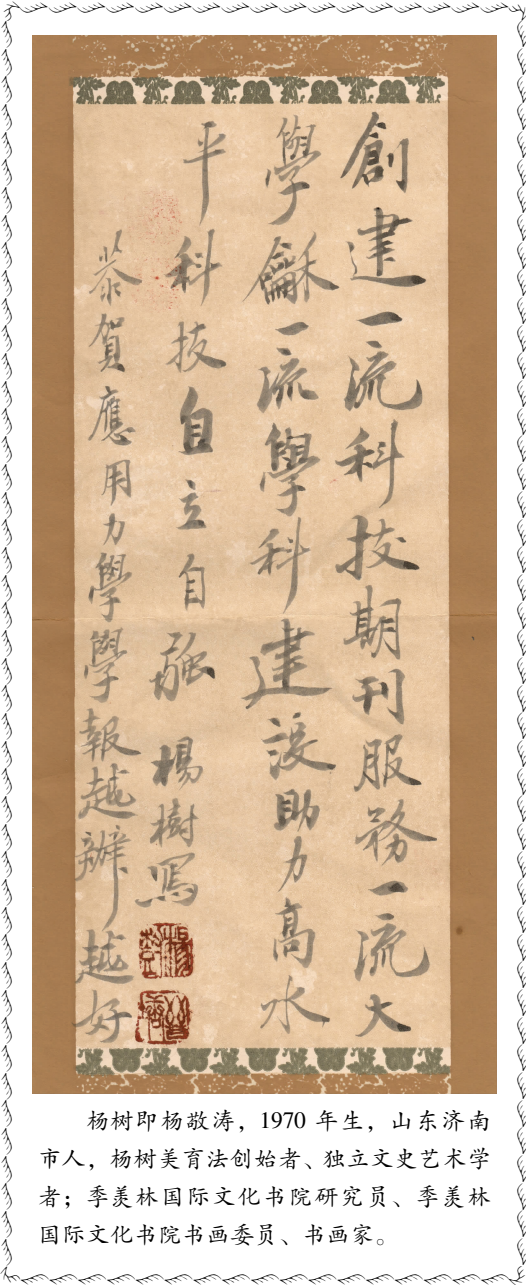 創建一流科技期刊服務一流大
學龢一流學科建設助力高水
平科技自立自強 楊樹寫
恭賀應用力學學報越辦越好
杨树即杨敬涛，1970 年生，山东济南
市人，杨树美育法创始者、独立文史艺术学
者；季羡林国际文化书院研究员、季羡林
国际文化书院书画委员、书画家。